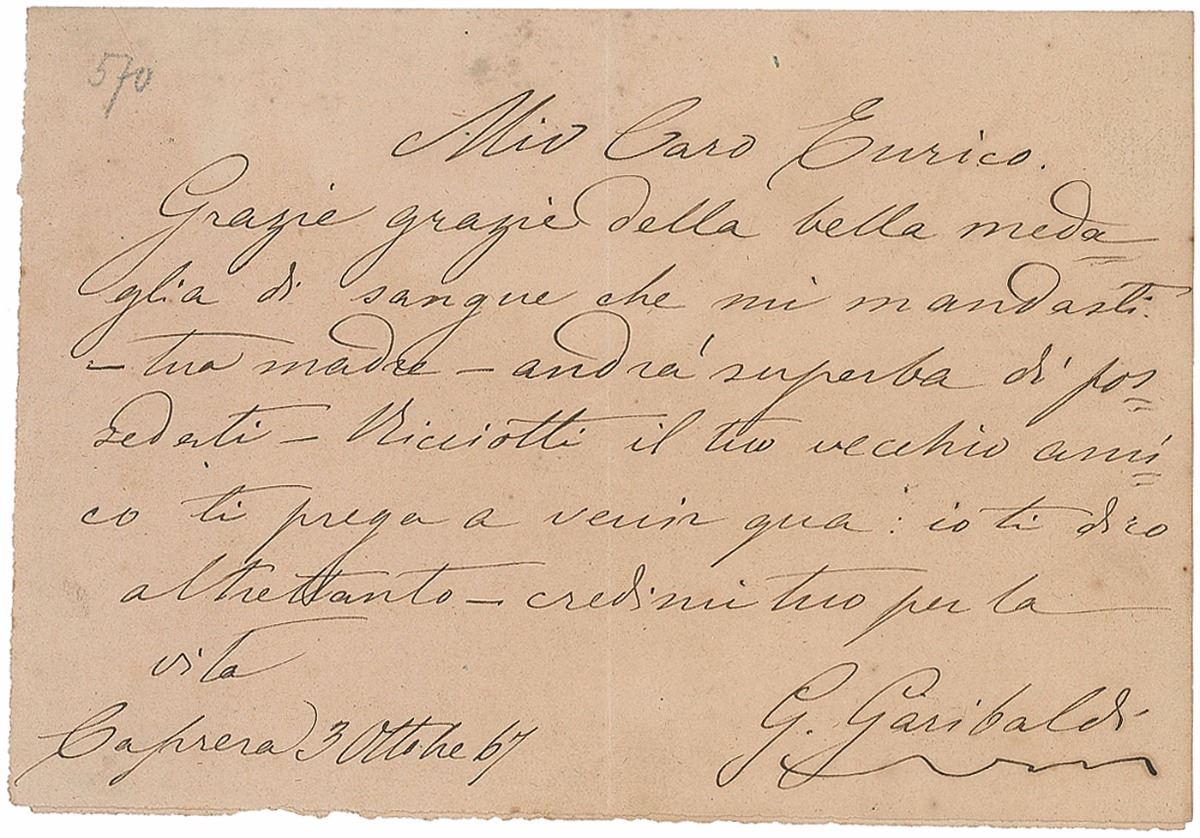 570
Mio Caro Enrico.
Grazie grazie della bella meda=
glia di sangue che mi mandasti.
– tua madre – andrà superba di pos=
sederti – Ricciotti il tuo vecchio ami=
co ti prega a venir qua: io ti dico
altrettanto – credimi tuo per la
vita
G. Garibaldi
Caprera 3 Ottobre 67